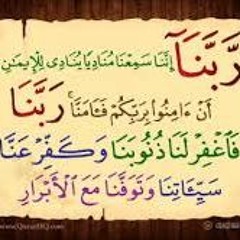 رَبَّنَآ إِنَّنَا سَمِعْنَا مُنَادِيًا يُنَادِى لِلْإِيمَـٰنِ
أَنْ ءَامِنُوا۟ بِرَبِّكُمْ فَـَٔامَنَّا ۚ رَبَّنَا
فَٱغْفِرْ لَنَا ذُنُوبَنَا وَكَفِّرْ عَنَّا
سَيِّـَٔاتِنَا وَتَوَفَّنَا مَعَ ٱلْأَبْرَارِ